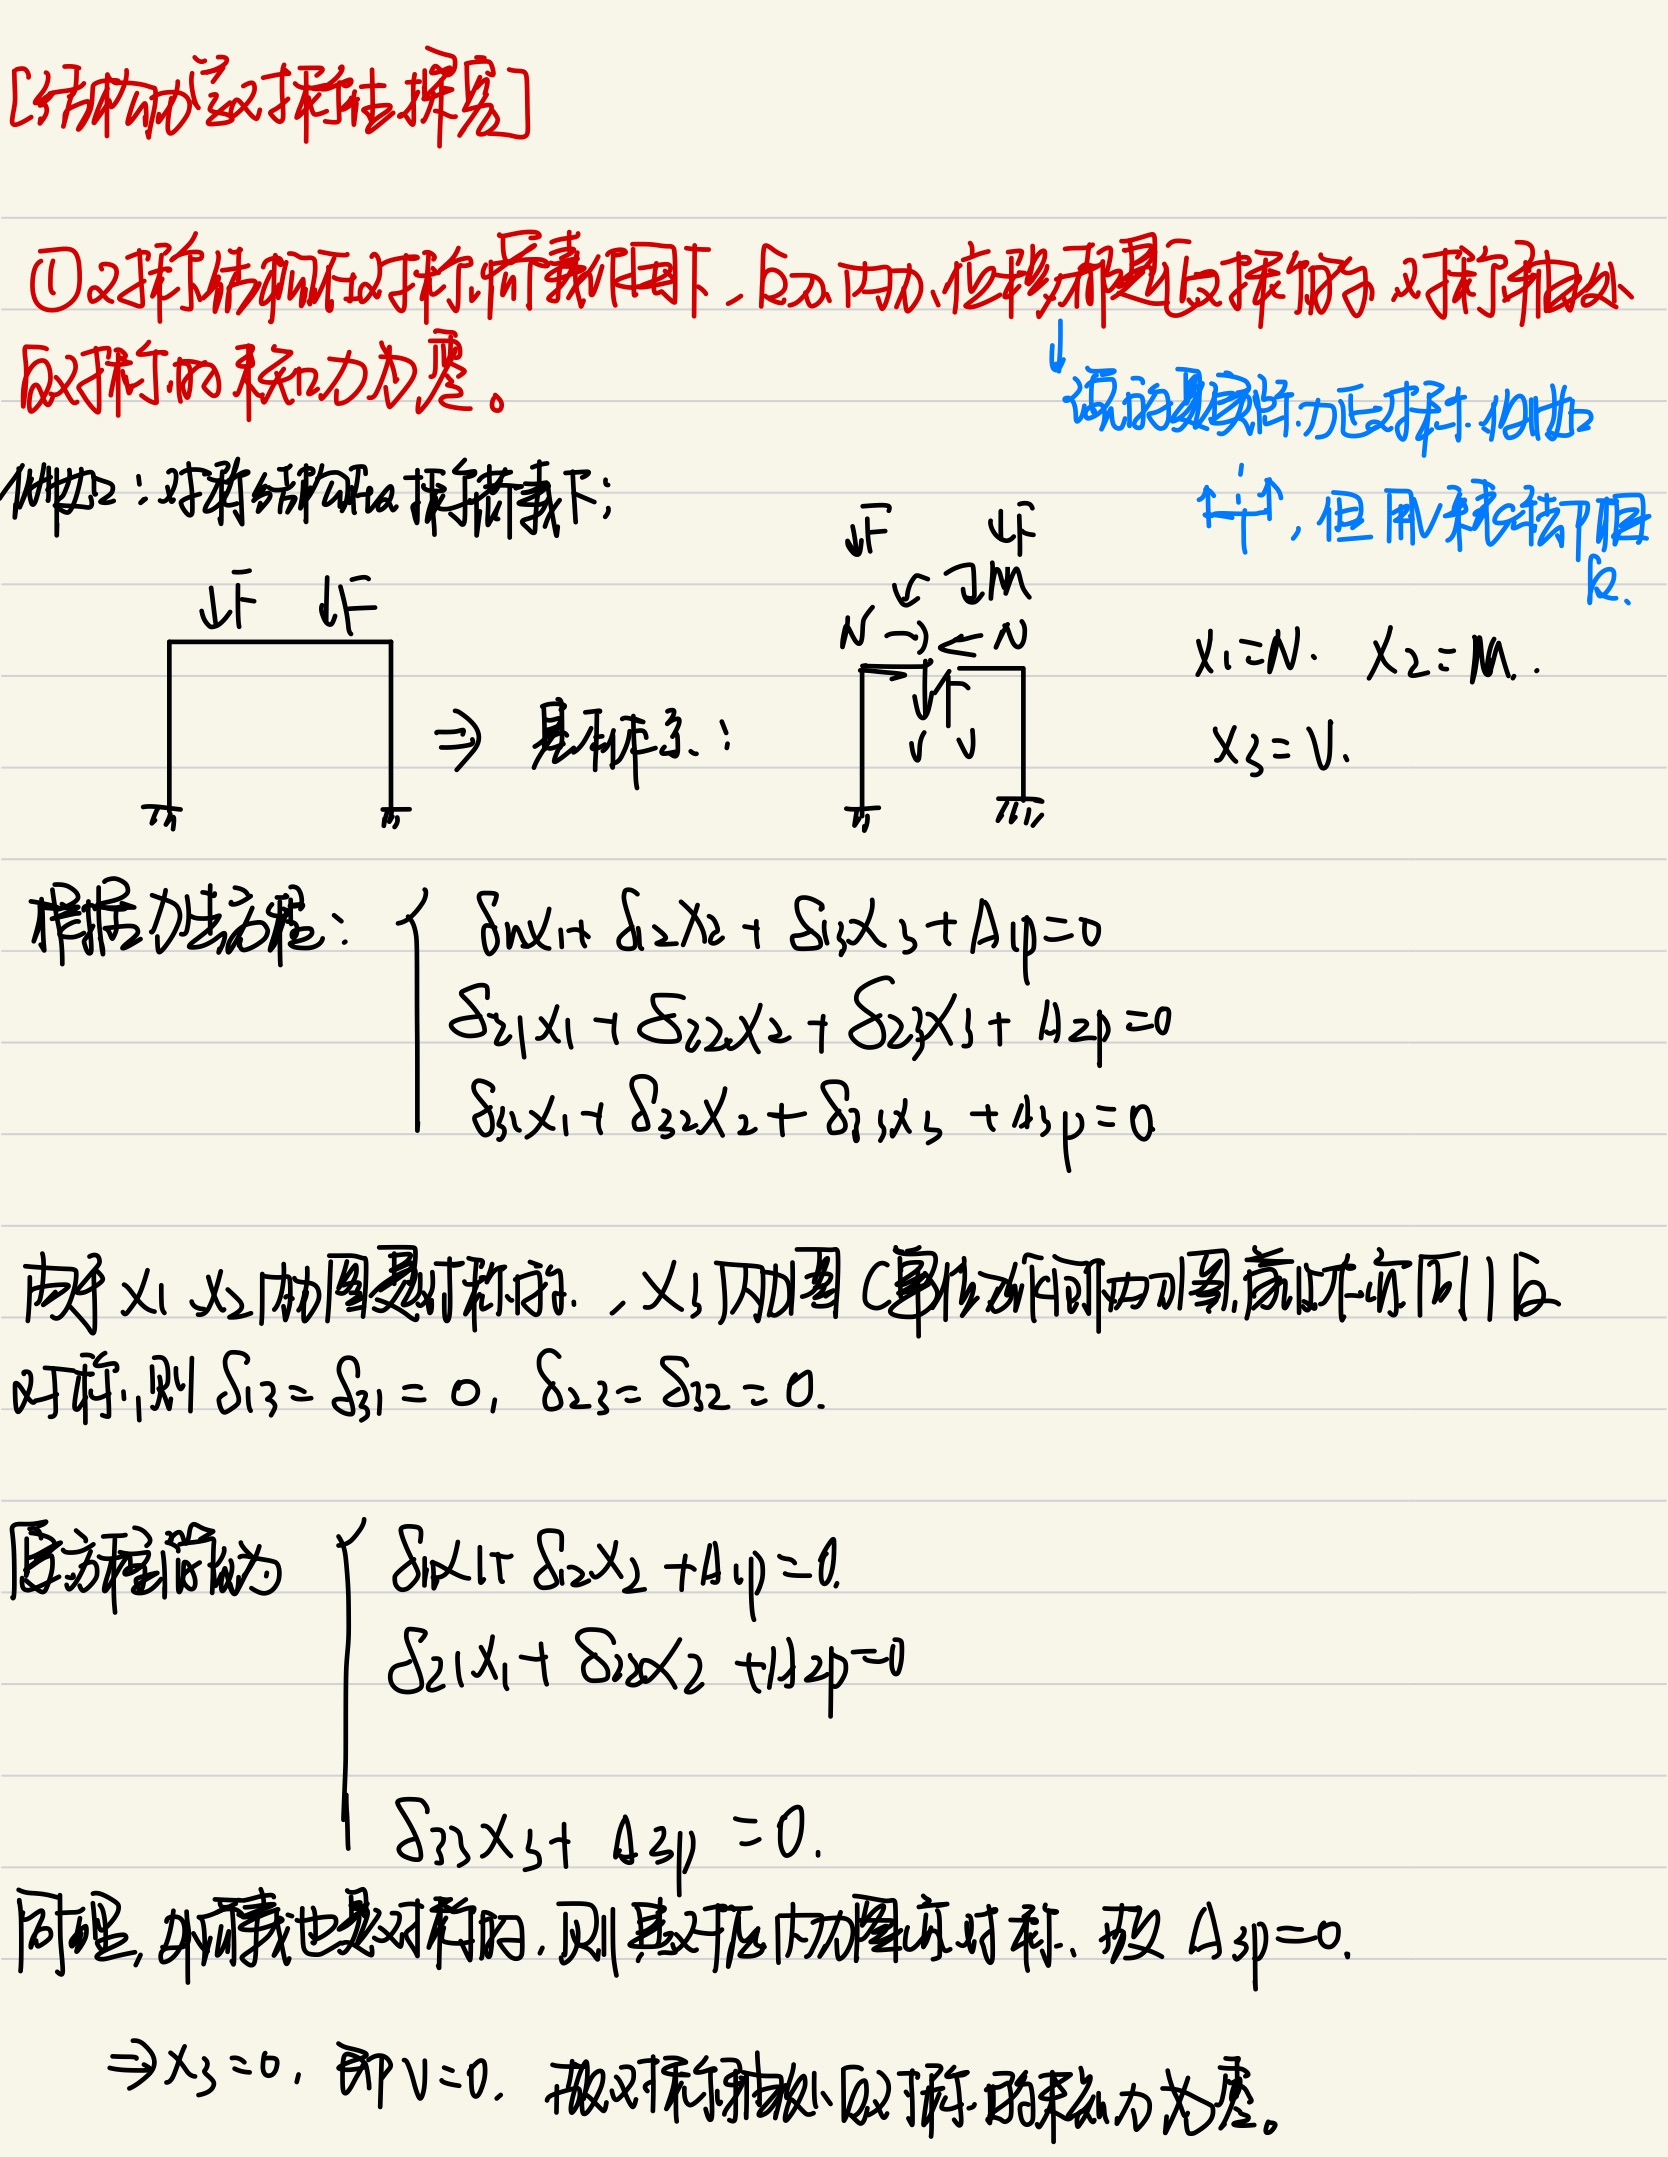 [结构力学对称性探究]
①对称结构在对称荷载作用下,反力、内力、位移都是正对称的,对称轴处
反对称的未知力为零。
↓说的是实际力正对称.例如
↑┼↑,但用V来表示却相
反.
例如:对称结构在对称荷载下:
↓F ↓F
⇒ 基本体系:
↓F ↓F
M
N → ← N
F
V V
X1=N. X2=M.
X3=V.
根据力法方程: { δ11X1+δ12X2+δ13X3+Δ1p=0
δ21X1+δ22X2+δ23X3+Δ2p=0
δ31X1+δ32X2+δ33X3+Δ3p=0
由于X1、X2内力图是对称的.,X3内力图(单位力作用下内力图,
对称,则δ13=δ31=0,δ23=δ32=0.
原方程简化为 { δ11X1+δ12X2+Δ1p=0.
δ21X1+δ22X2+Δ2p=0
δ33X3+Δ3p=0.
同理,外荷载也是对称的,则其对应内力图亦对称、故Δ3p=0.
⇒X3=0,即V=0. 故对称轴处反对称的未知力为零。